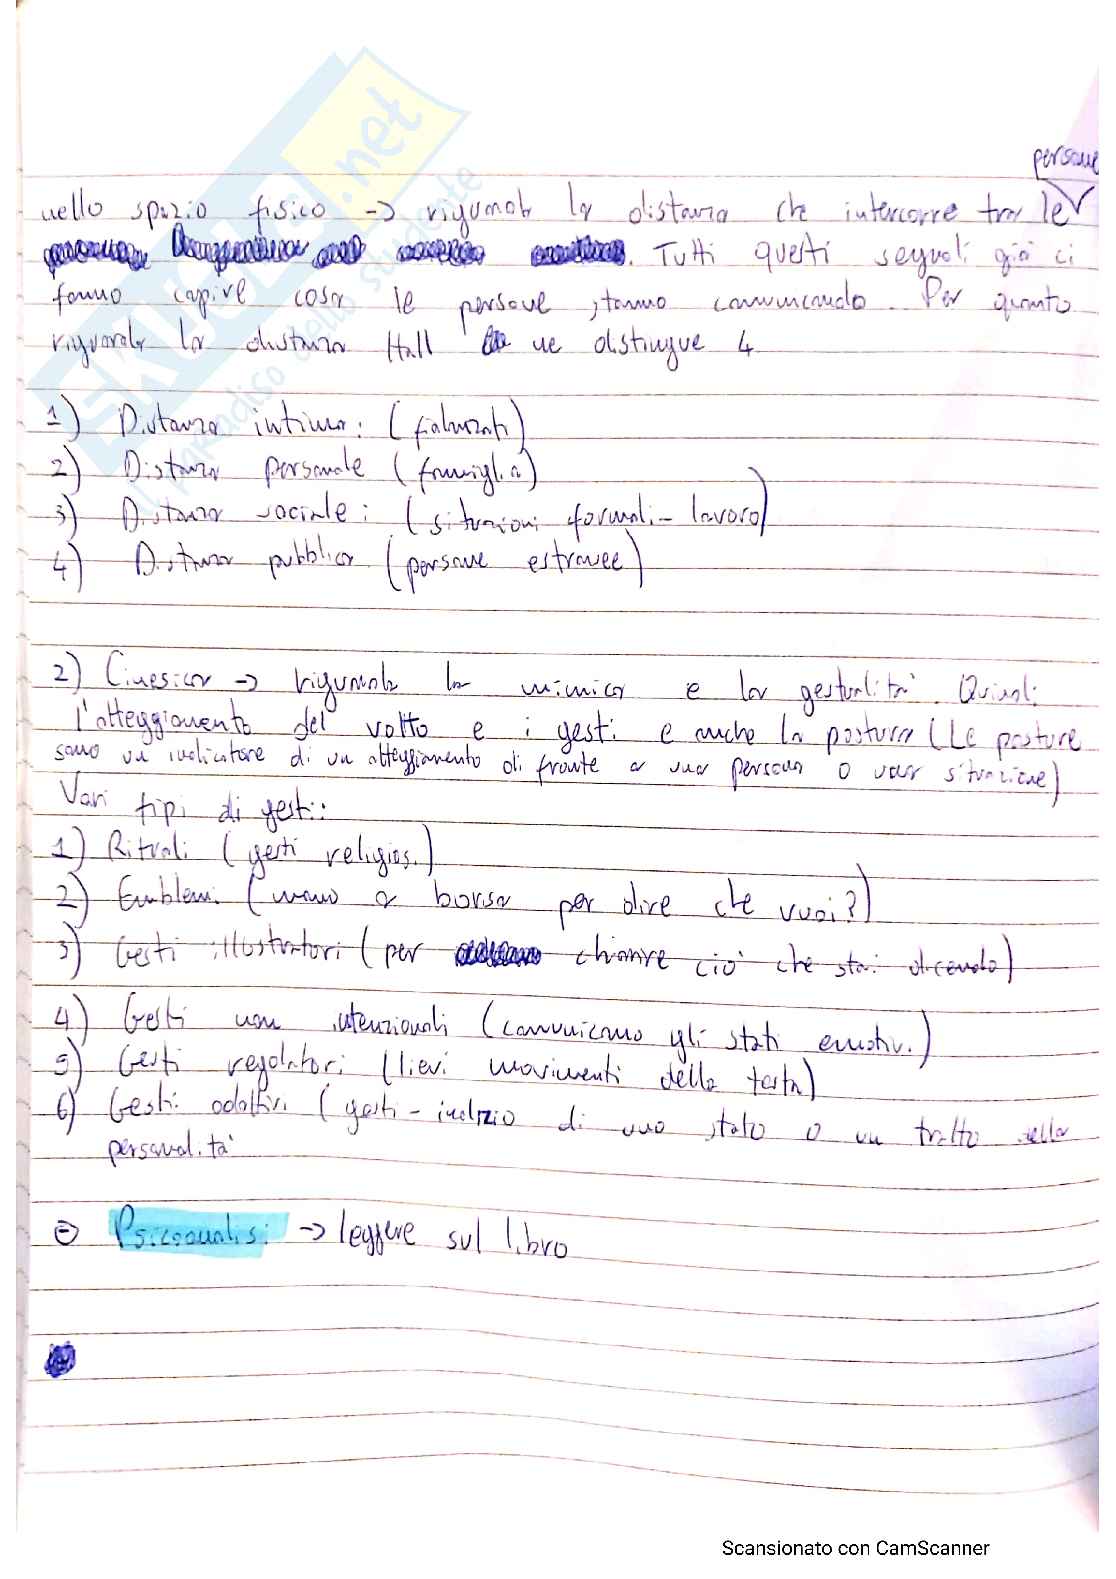 persone
nello spazio fisico -> riguarda la distanza che intercorre tra le
. Tutti questi segnali già ci
fanno capire cosa le persone stanno comunicando. Per quanto
riguarda la distanza Hall ne distingue 4
1) Distanza intima: (fidanzati)
2) Distanza personale (famiglia)
3) Distanza sociale: (situazioni formali - lavoro)
4) Distanza pubblica (persone estranee)
2) Cinesica -> riguarda la mimica e la gestualità. Quindi
l'atteggiamento del volto e i gesti e anche la postura (Le posture
sono un indicatore di un atteggiamento di fronte a una persona o una situazione)
Vari tipi di gesti:
1) Rituali (gesti religiosi)
2) Emblemi (mano a borsa per dire che vuoi?)
3) Gesti illustratori (per chiarire ciò che stai dicendo)
4) Gesti non intenzionali (comunicano gli stati emotivi)
5) Gesti regolatori (lievi movimenti della testa)
6) Gesti adattivi (gesti - indizio di uno stato o un tratto della
personalità
Psicoanalisi -> leggere sul libro
skuola.net
il paradiso dello studente
Scansionato con CamScanner